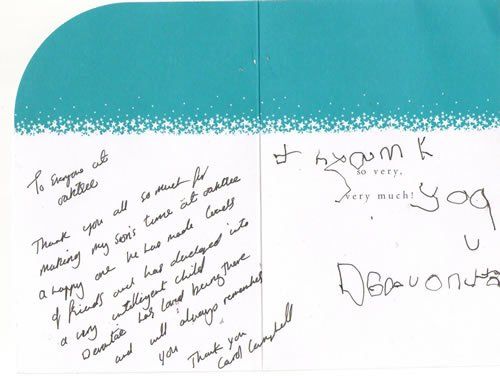 To Everyone at
oaktree
Thank you all so much for
making my son's time at oaktree
a happy one he has made loads
of friends and has developed into
a very intelligent child
Devonta has loved being there
and will always remember
you
Thank you
Carol Campbell
so very,
very much!
you